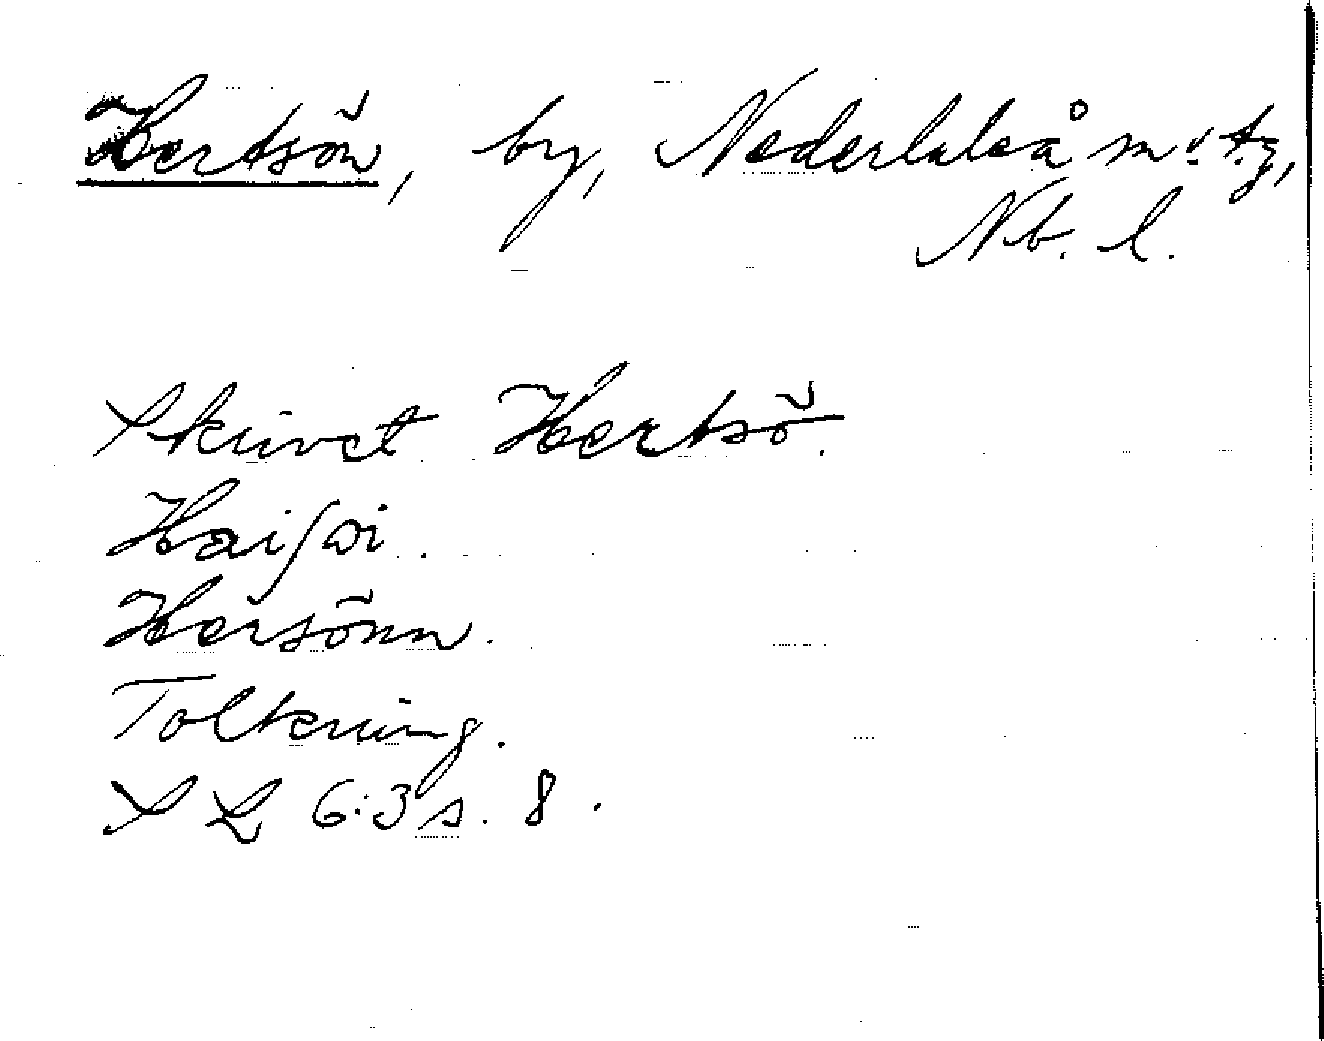 Hertsön, by, Nederluleå m. tg,
Nb. l.
Skrivet Hertsö.
Haiſøi.
Hersönn.
Tolkning.
SL 6:3 s. 8.